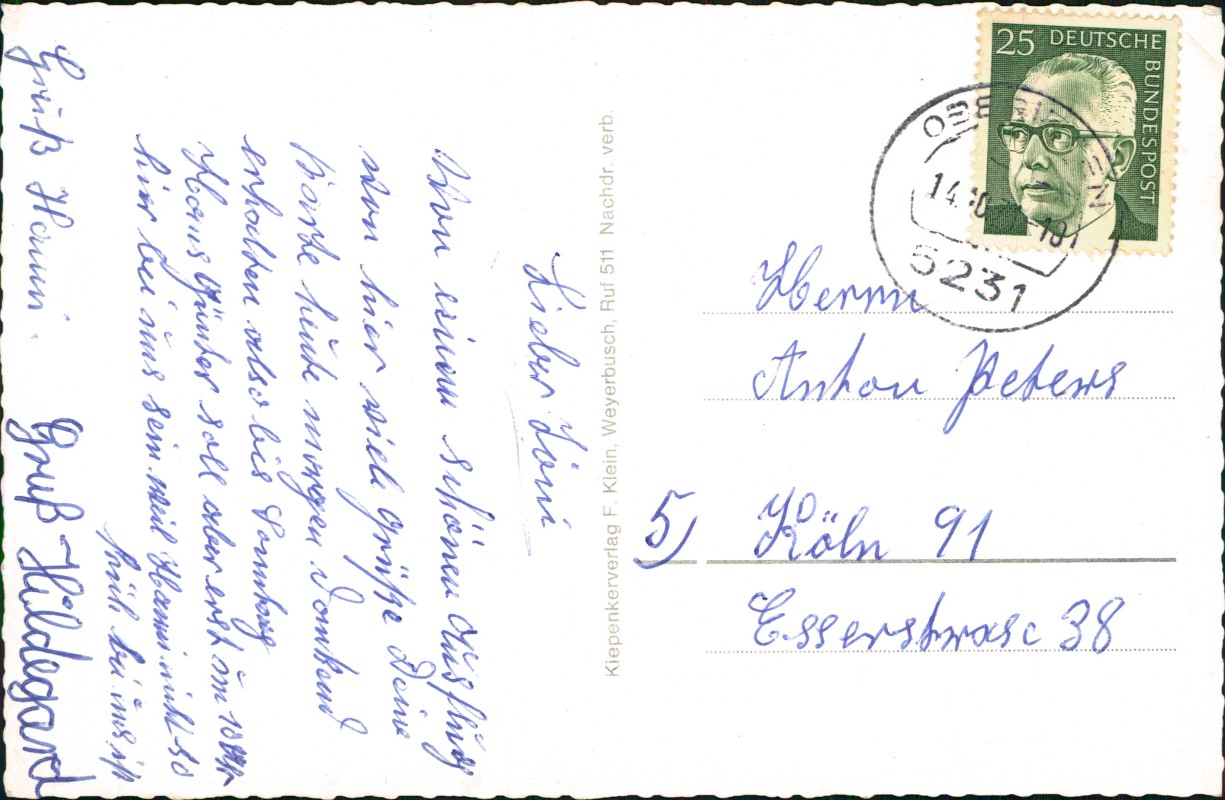 Lieber Toni
Von einem schönen Ausflug
von hier viele Grüße Deine
Karte heute morgen dankend
erhalten also bis Sonntag
Hans Günter soll aber erst um 10 Uhr
hier bei uns sein weil Hanni nicht so
früh bei uns ist
Gruß Hanni.
Gruß Hildegard
Kiepenkerverlag F. Klein, Weyerbusch, Ruf 511 Nachdr. verb.
25 DEUTSCHE
BUNDESPOST
14.10
5231
Herrn
Anton Peters
5) Köln 91
Esserstrasse 38